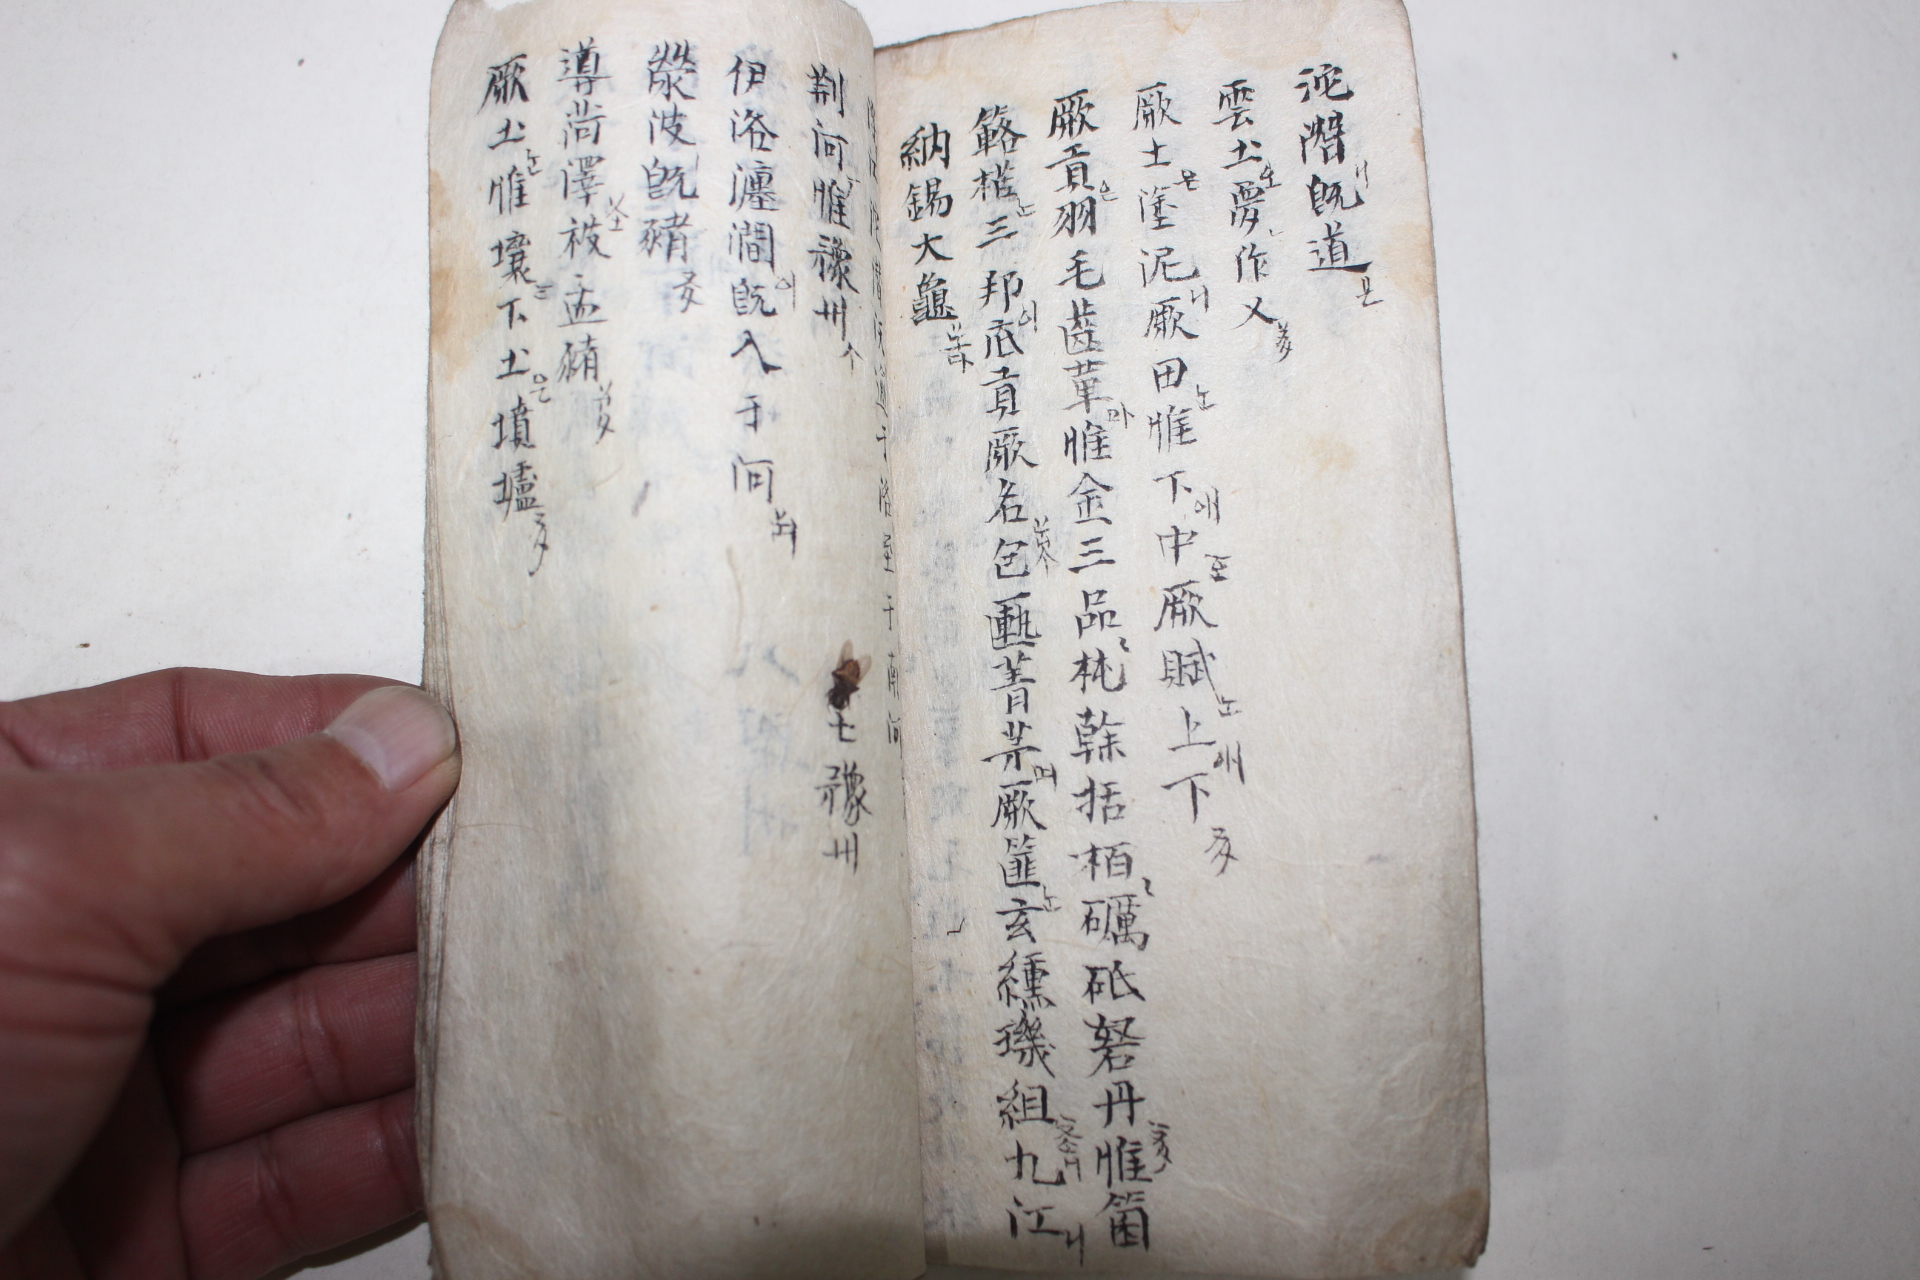 沱潛旣道
雲土夢作乂
厥土은塗泥니厥田惟下에中厥賦上에下
厥貢은羽毛齒革마惟金三品杶榦括栢礪砥砮丹惟箘
簵楛三邦이底貢厥名包匭菁茅며厥篚玄纁璣組九江
納錫大龜
于洛至于南河
荊河惟豫州 七豫州
伊洛瀍澗이旣入于河
滎波旣豬
導菏澤被孟豬
厥土惟壤下土은墳壚